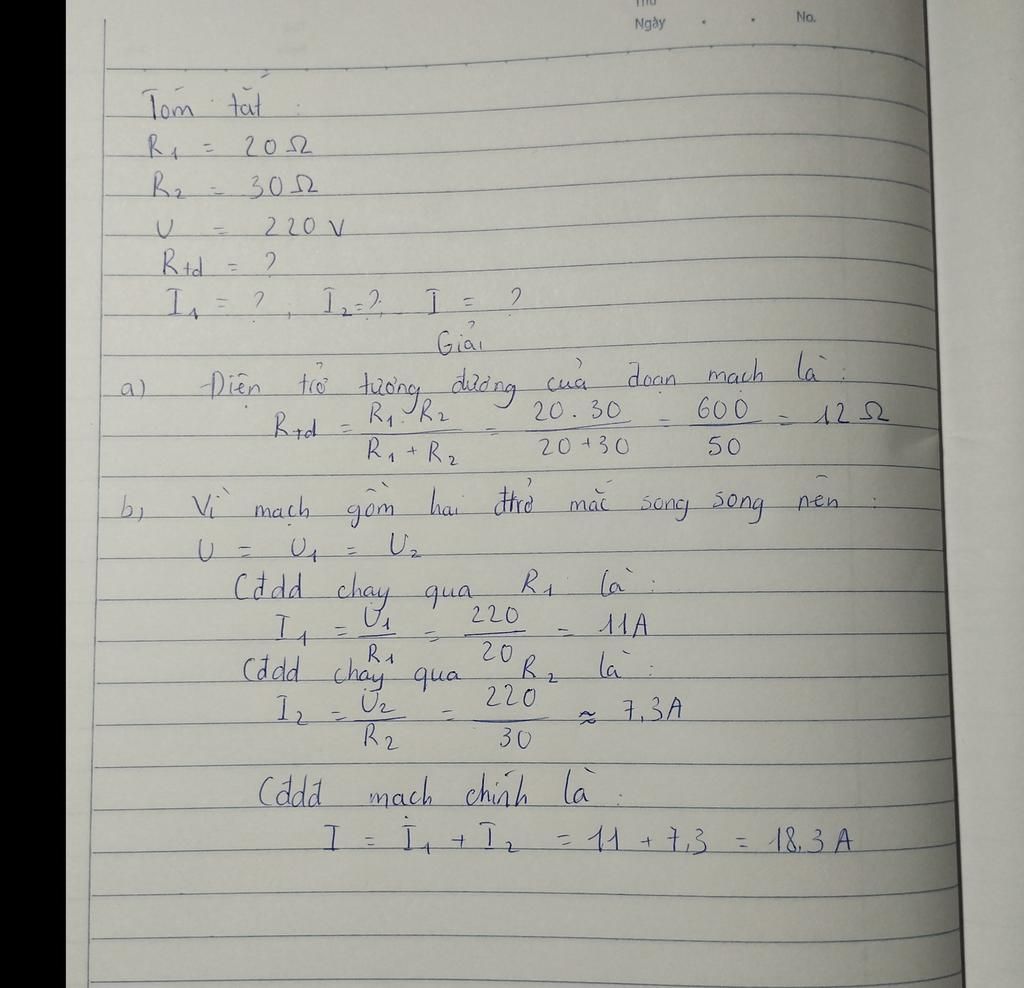 Thứ
Ngày . . No.
Tóm tắt :
R₁ = 20Ω
R₂ = 30Ω
U = 220V
Rtđ = ?
I₁ = ? , I₂=?, I = ?
Giải
a) Điện trở tương đương của đoạn mạch là :
Rtđ = R₁.R₂ / R₁ + R₂ = 20.30 / 20+30 = 600 / 50 = 12 Ω
b, Vì mạch gồm hai đtrở mắc song song nên :
U = U₁ = U₂
Cđdđ chạy qua R₁ là :
I₁ = U₁ / R₁ = 220 / 20 = 11A
Cđdđ chạy qua R₂ là :
I₂ = U₂ / R₂ = 220 / 30 ≈ 7,3A
Cđdđ mạch chính là :
I = I₁ + I₂ = 11 + 7,3 = 18,3 A